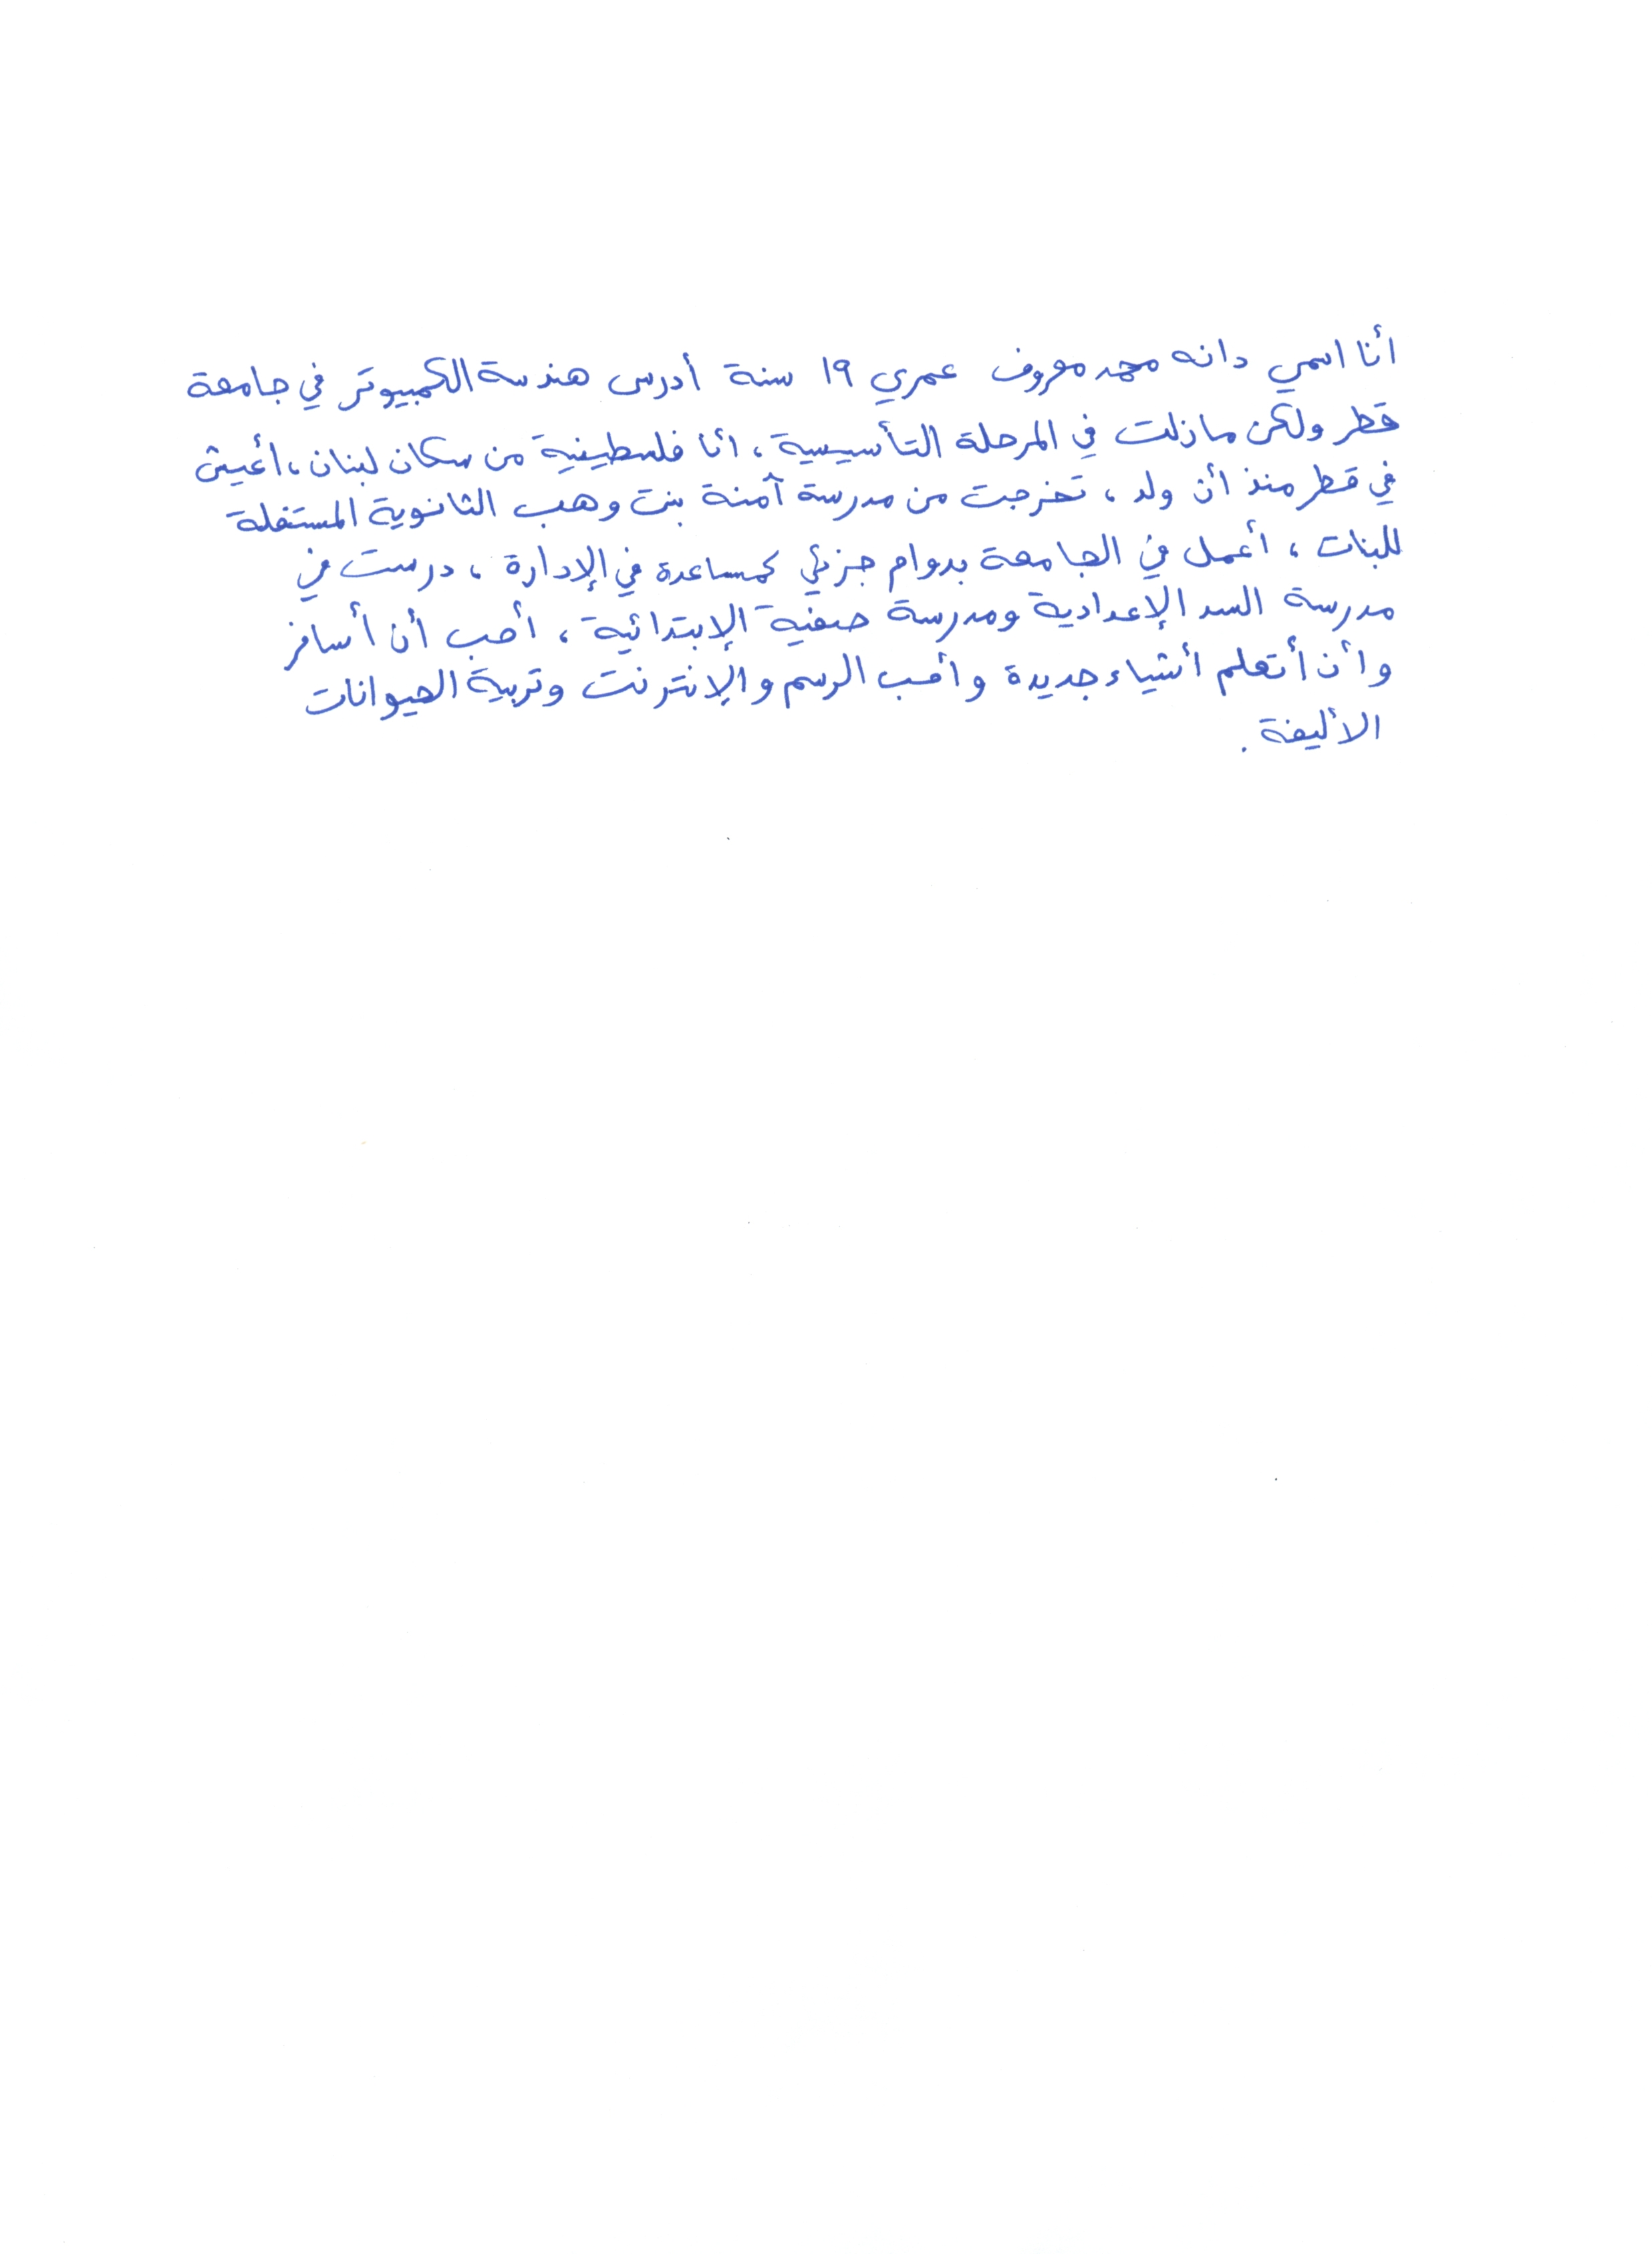 أنا اسمي دانه محمد معروف عمري ١٩ سنة أدرس هندسة الكمبيوتر في جامعة
قطر ولكن مازلت في المرحلة التأسيسية ، انا فلسطينية من سكان لبنان ، أعيش
في قطر منذ أن ولد ، تخرجت من مدرسة آمنة بنت وهب الثانوية المستقلة
للبنات ، أعمل في الجامعة بدوام جزئي كمساعدة في الإدارة ، درست في
مدرسة السد الإعدادية ومدرسة صفية الإبتدائية ، أحب أن أسافر
وأن أتعلم أشياء جديدة وأحب الرسم والإنترنت وتربية الحيوانات
الأليفة .